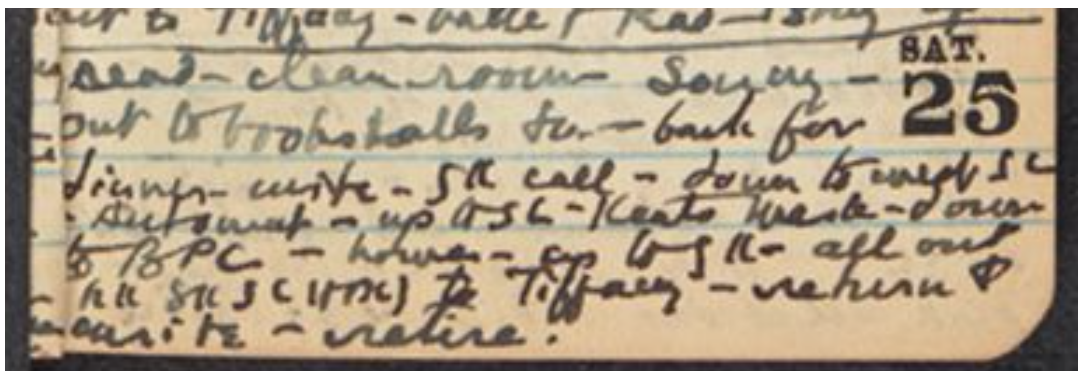 out to Tiffany -
SAT.
read - clean room - Sonny -
25
out to bookstalls &c. - back for
dinner - write - SK call - down to meet SL
Automat - up to SL - Keats - down
to BPC - home - up to SK - all out
SK SL to Tiffany - return &
write - retire.